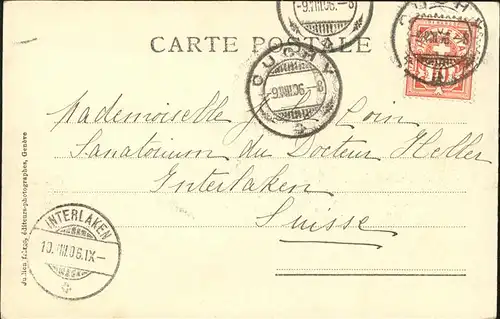 CARTE POSTALE
-9.VIII.06.-8
OUCHY
-9.VIII.06.-8
OUCHY
10
Mademoiselle
Sanatorium du Docteur Heller
Interlaken
Suisse
INTERLAKEN
10.VIII.06.IX-
Jullien frères, éditeurs-photographes, Genève